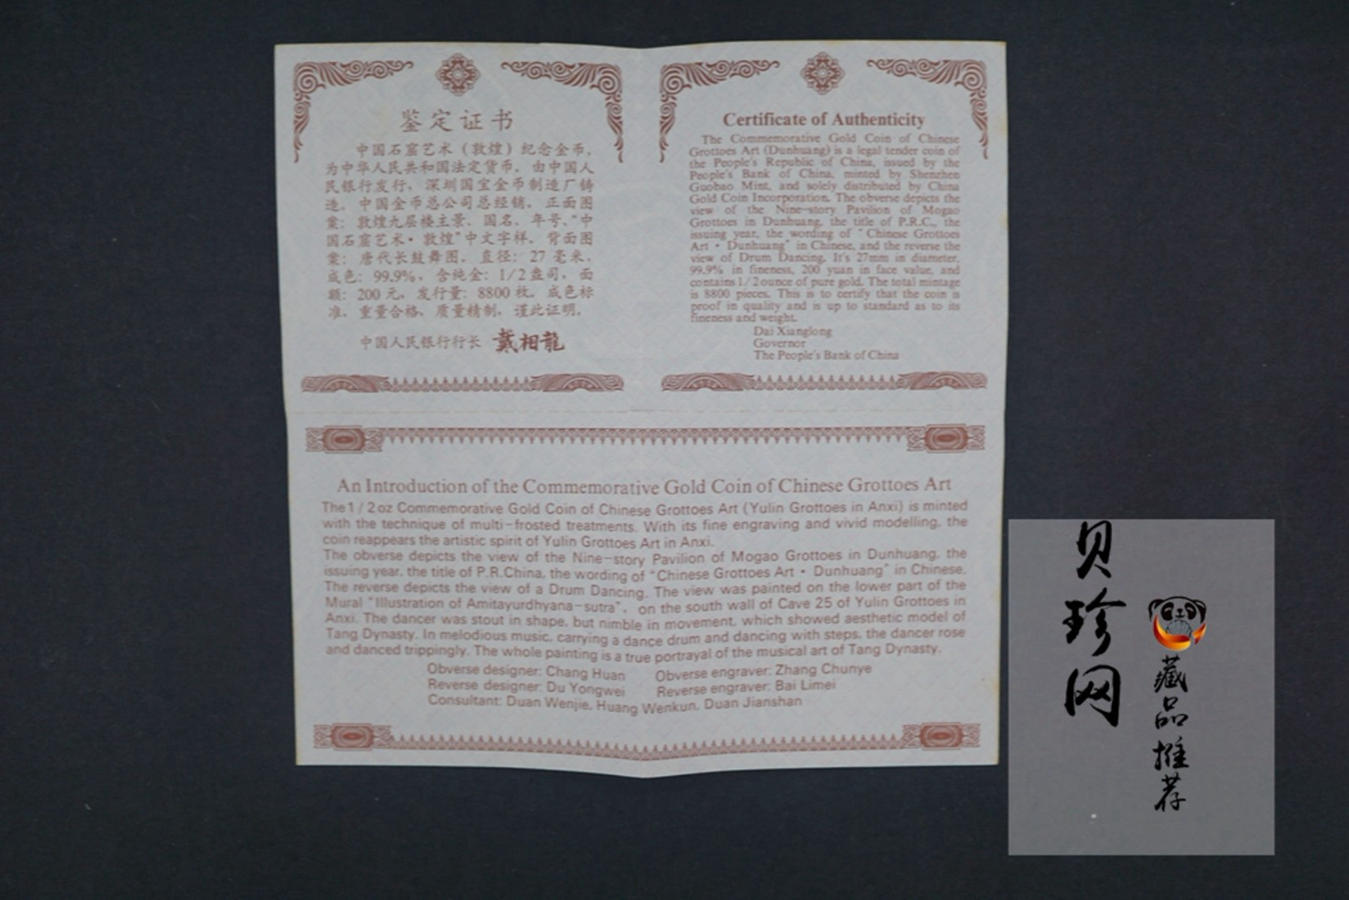 鉴定证书
中国石窟艺术（敦煌）纪念金币，
为中华人民共和国法定货币，由中国人
民银行发行，深圳国宝金币制造厂铸
造，中国金币总公司总经销。正面图
案：敦煌九层楼主景、国名、年号、“中
国石窟艺术·敦煌”中文字样。背面图
案：唐代长鼓舞图。直径：27毫米，
成色：99.9%，含纯金：1/2盎司，面
额：200元，发行量：8800枚。成色标
准，重量合格，质量精制，谨此证明。
中国人民银行行长 戴相龍
Certificate of Authenticity
The Commemorative Gold Coin of Chinese
Grottoes Art (Dunhuang) is a legal tender coin of
the People's Republic of China, issued by the
People's Bank of China, minted by Shenzhen
Guobao Mint, and solely distributed by China
Gold Coin Incorporation. The obverse depicts the
view of the Nine-story Pavilion of Mogao
Grottoes in Dunhuang, the title of P.R.C., the
issuing year, the wording of "Chinese Grottoes
Art · Dunhuang" in Chinese, and the reverse the
view of Drum Dancing. It's 27mm in diameter,
99.9% in fineness, 200 yuan in face value, and
contains 1/2 ounce of pure gold. The total mintage
is 8800 pieces. This is to certify that the coin is
proof in quality and is up to standard as to its
fineness and weight.
Dai Xianglong
Governor
The People's Bank of China
An Introduction of the Commemorative Gold Coin of Chinese Grottoes Art
The 1/2 oz Commemorative Gold Coin of Chinese Grottoes Art (Yulin Grottoes in Anxi) is minted
with the technique of multi-frosted treatments. With its fine engraving and vivid modelling, the
coin reappears the artistic spirit of Yulin Grottoes Art in Anxi.
The obverse depicts the view of the Nine-story Pavilion of Mogao Grottoes in Dunhuang, the
issuing year, the title of P.R.China, the wording of "Chinese Grottoes Art · Dunhuang" in Chinese.
The reverse depicts the view of a Drum Dancing. The view was painted on the lower part of the
Mural "Illustration of Amitayurdhyana-sutra", on the south wall of Cave 25 of Yulin Grottoes in
Anxi. The dancer was stout in shape, but nimble in movement, which showed aesthetic model of
Tang Dynasty. In melodious music, carrying a dance drum and dancing with steps, the dancer rose
and danced trippingly. The whole painting is a true portrayal of the musical art of Tang Dynasty.
Obverse designer: Chang Huan Obverse engraver: Zhang Chunye
Reverse designer: Du Yongwei Reverse engraver: Bai Limei
Consultant: Duan Wenjie, Huang Wenkun, Duan Jianshan
贝珍网
藏品推荐